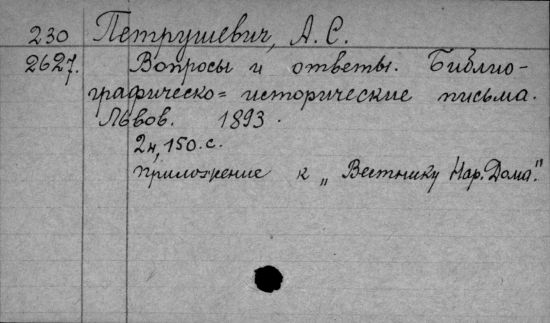 230 Петрушевич, А. С.
2627. Вопросы и ответы. Библио-
графическо= исторические письма.
Львов. 1893.
2н, 150.с.
приложение к „Вестнику Нар. Дома."